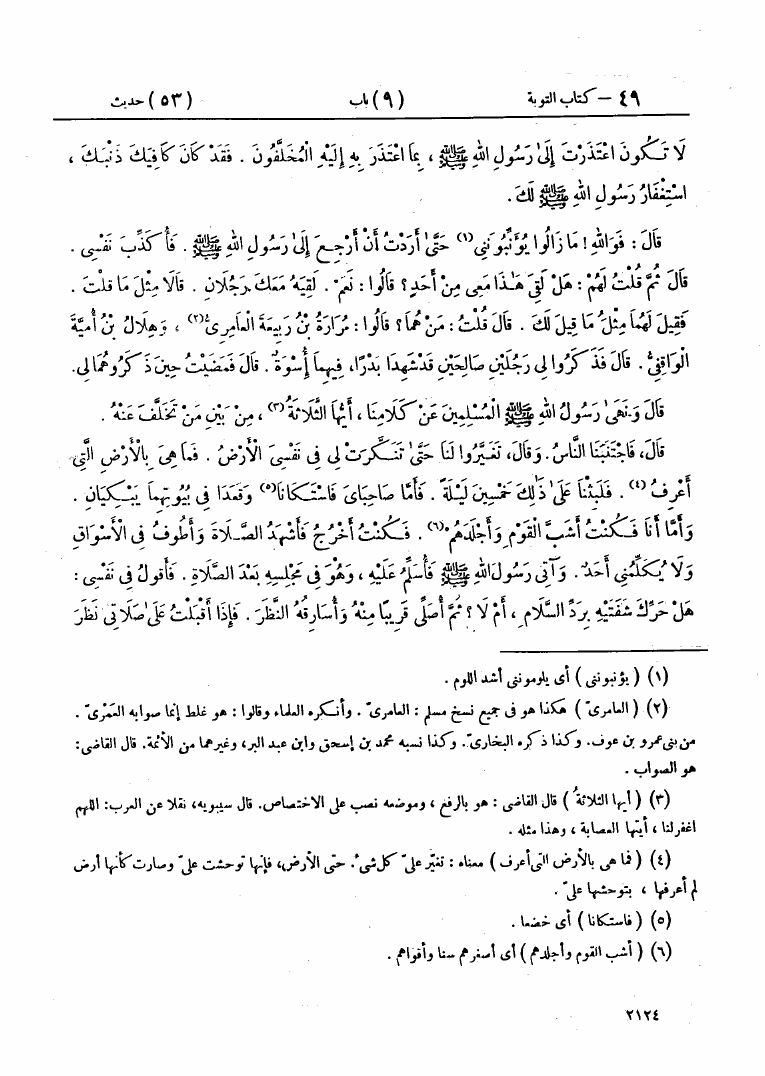 ٤٩ – كتاب التوبة (٩) باب (٥٣) حديث
لَا تَكُونَ اعْتَذَرْتَ إِلَىٰ رَسُولِ اللهِ ﷺ ، بِمَا اعْتَذَرَ بِهِ إِلَيْهِ الْمُخَلَّفُونَ . فَقَدْ كَانَ كَافِيَكَ ذَنْبَكَ ،
اسْتِغْفَارُ رَسُولِ اللهِ ﷺ لَكَ.
قَالَ : فَوَاللهِ ! مَا زَالُوا يُؤَنِّبُونَنِي(١) حَتَّىٰ أَرَدْتُ أَنْ أَرْجِعَ إِلَىٰ رَسُولِ اللهِ ﷺ . فَأُكَذِّبَ نَفْسِى .
قَالَ ثُمَّ قُلْتُ لَهُمْ : هَلْ لَقِىَ هَـٰذَا مَعِى مِنْ أَحَدٍ ؟ قَالُوا : نَعَمْ . لَقِيَهُ مَعَكَ رَجُلَانِ . قَالَا مِثْلَ مَا قُلْتَ .
فَقِيلَ لَهُمَا مِثْلُ مَا قِيلَ لَكَ . قَالَ قُلْتُ : مَنْ هُمَا ؟ قَالُوا : مُرَارَةُ بْنُ رَبِيعَةَ الْعَامِرِىُّ(٢) ، وَهِلَالُ بْنُ أُمَيَّةَ
الْوَاقِفِىُّ . قَالَ فَذَكَرُوا لِى رَجُلَيْنِ صَالِحَيْنِ قَدْ شَهِدَا بَدْرًا، فِيهِمَا أُسْوَةٌ . قَالَ فَمَضَيْتُ حِينَ ذَكَرُوهُمَا لِى.
قَالَ وَنَهَىٰ رَسُولُ اللهِ ﷺ الْمُسْلِمِينَ عَنْ كَلَامِنَا ، أَيُّهَا الثَّلَاثَةُ(٣) ، مِنْ بَيْنِ مَنْ تَخَلَّفَ عَنْهُ .
قَالَ، فَاجْتَنَبَنَا النَّاسُ. وَقَالَ، تَغَيَّرُوا لَنَا حَتَّىٰ تَنَكَّرَتْ لِى فِى نَفْسِىَ الْأَرْضُ . فَمَا هِىَ بِالْأَرْضِ الَّتِى
أَعْرِفُ(٤) . فَلَبِثْنَا عَلَىٰ ذَٰلِكَ خَمْسِينَ لَيْلَةً . فَأَمَّا صَاحِبَاىَ فَاسْتَكَانَا(٥) وَقَعَدَا فِى بُيُوتِهِمَا يَبْكِيَانِ .
وَأَمَّا أَنَا فَكُنْتُ أَشَبَّ الْقَوْمِ وَأَجْلَدَهُمْ(٦) . فَكُنْتُ أَخْرُجُ فَأَشْهَدُ الصَّلَاةَ وَأَطُوفُ فِى الْأَسْوَاقِ
وَلَا يُكَلِّمُنِى أَحَدٌ . وَآتِى رَسُولَ اللهِ ﷺ فَأُسَلِّمُ عَلَيْهِ ، وَهُوَ فِى مَجْلِسِهِ بَعْدَ الصَّلَاةِ . فَأَقُولُ فِى نَفْسِى :
هَلْ حَرَّكَ شَفَتَيْهِ بِرَدِّ السَّلَامِ ، أَمْ لَا ؟ ثُمَّ أُصَلِّى قَرِيبًا مِنْهُ وَأُسَارِقُهُ النَّظَرَ . فَإِذَا أَقْبَلْتُ عَلَىٰ صَلَاتِى نَظَرَ
(١) ( يؤنبوننى ) أى يلوموننى أشد اللوم .
(٢) ( العامرىّ ) هكذا هو فى جميع نسخ مسلم : العامرىّ . وأنكره العلماء وقالوا : هو غلط إنما صوابه العَمْرىّ .
من بنى عمرو بن عوف. وكذا ذكره البخارىّ. وكذا نسبه محمد بن إسحق وابن عبد البر، وغيرهما من الأئمة. قال القاضى:
هو الصواب .
(٣) ( أيها الثلاثةُ ) قال القاضى : هو بالرفع ، وموضعه نصب على الاختصاص. قال سيبويه، نقلا عن العرب: اللهم
اغفر لنا ، أيتها العصابة ، وهذا مثله .
(٤) ( فما هى بالأرض التى أعرف ) معناه : تغيّر علىّ كل شىء. حتى الأرض، فإنها توحشت علىّ وصارت كأنها أرض
لم أعرفها ، بتوحشها علىّ .
(٥) ( فاستكانا ) أى خضعا .
(٦) ( أشب القوم وأجلدهم ) أى أصغرهم سنا وأقواهم .
٢١٢٤